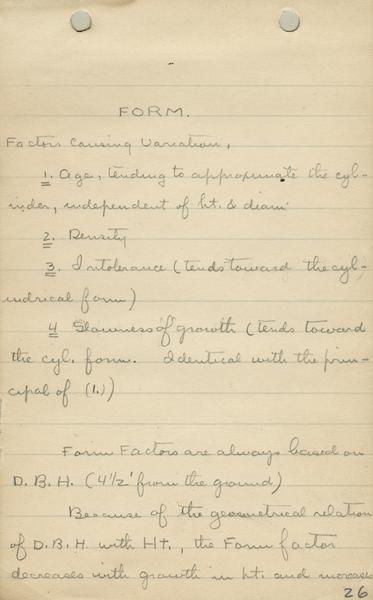 FORM.
Factors Causing Variation,
1. Age, tending to approximate the cyl-
inder, independent of ht. & diam.
2. Density
3. Intolerance (tends toward the cyl-
indrical form)
4 Slowness of growth (tends toward
the cyl. form. Identical with the prin-
cipal of (1.))
Form Factors are always based on
D.B.H. (4 1/2' from the ground)
Because of the geometrical relation
of D.B.H. with Ht., the Form factor
decreases with growth in ht. and increases
26